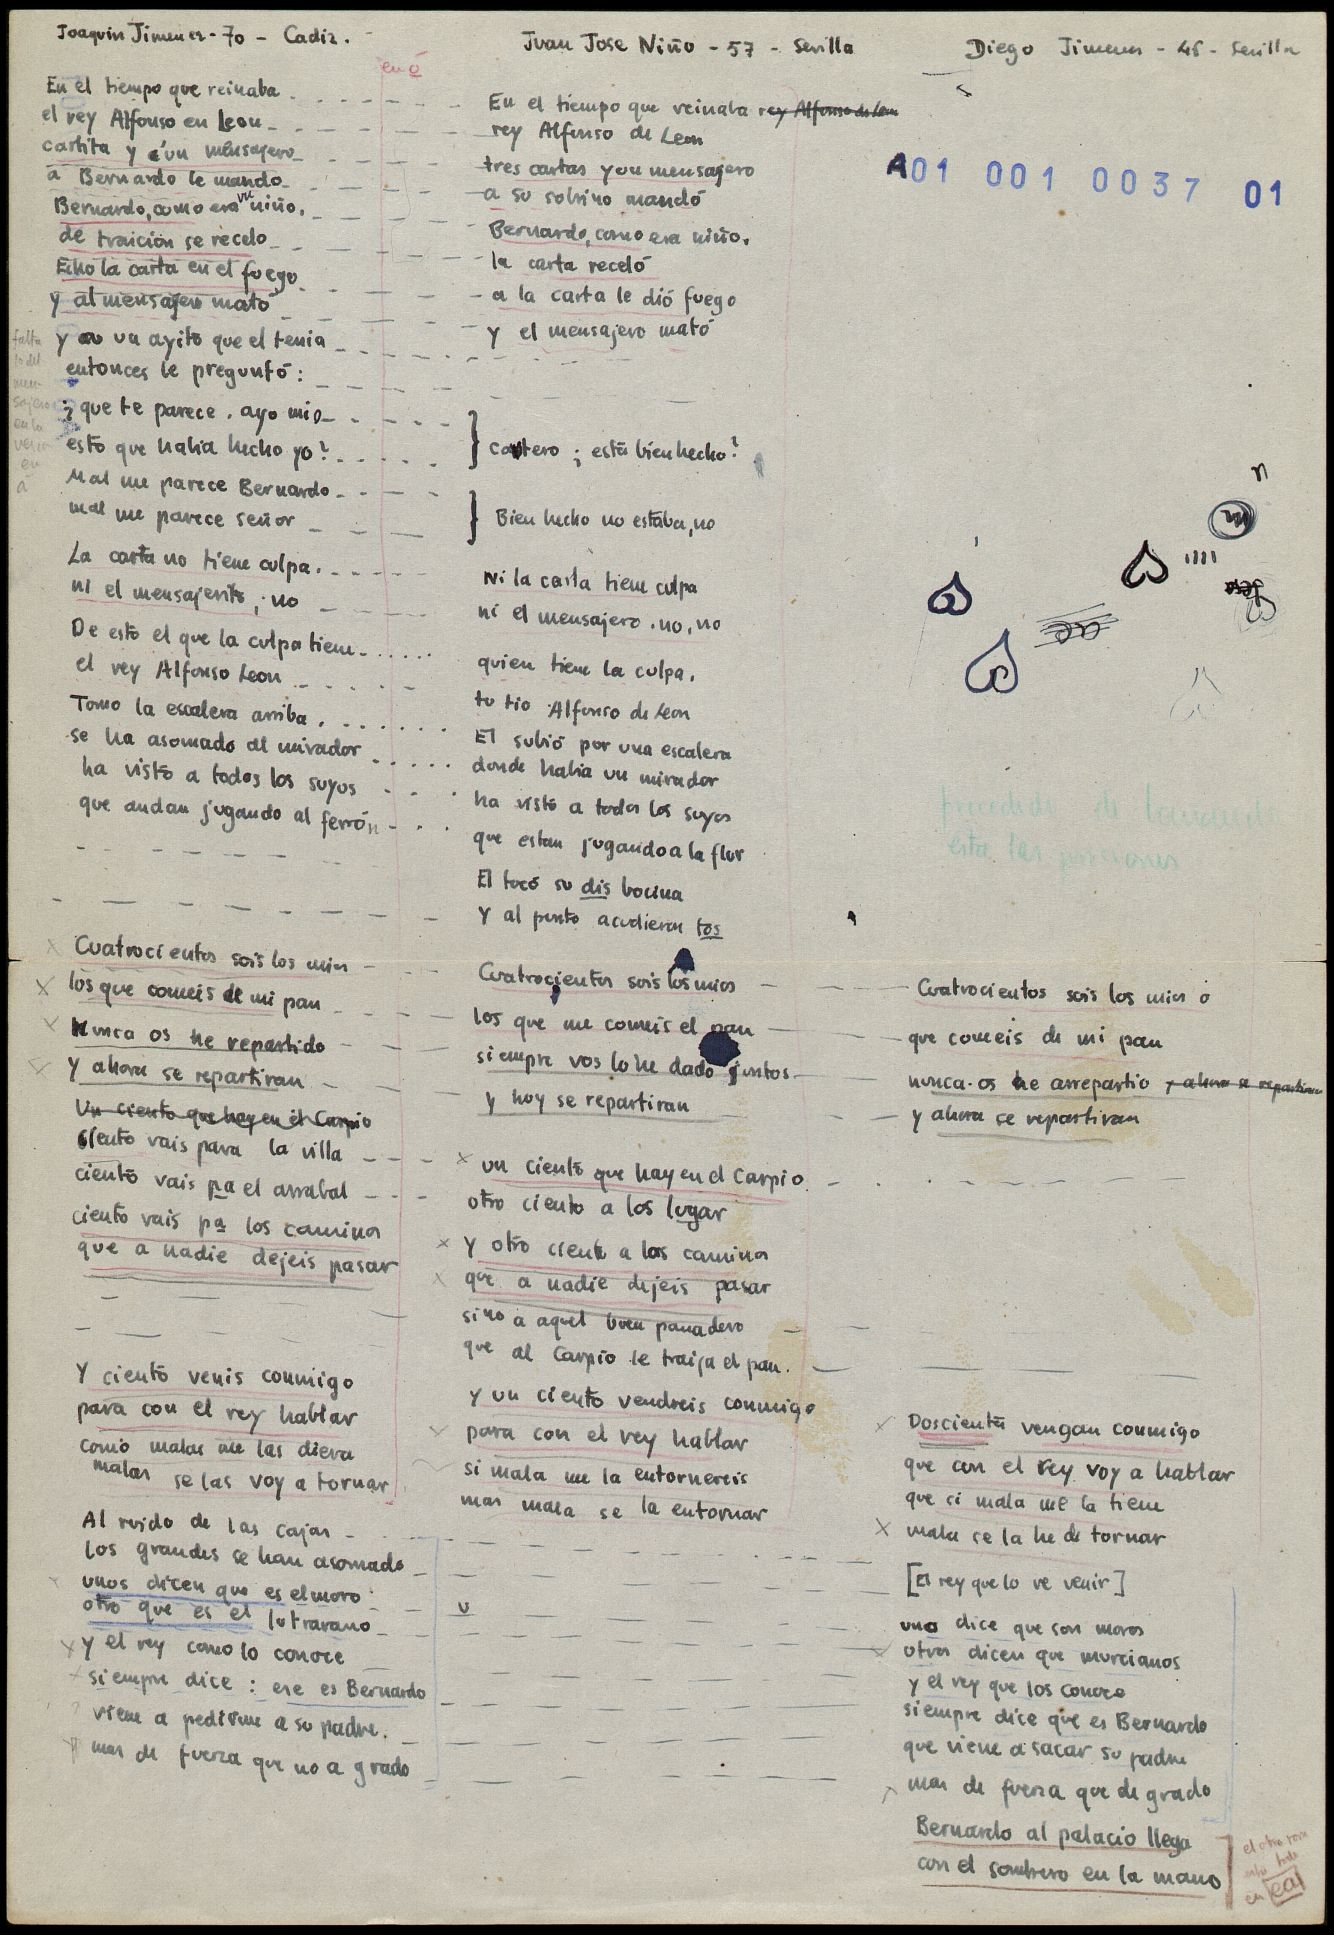 Joaquin Jimenez - 70 - Cadiz.
en ó
En el tiempo que reinaba
el rey Alfonso en Leon
cartita y a un mensajero
a Bernardo le mando
Bernardo, como era un niño,
de traición se recelo
Echo la carta en el fuego
y al mensajero mató
y a un ayito que el tenia
entonces le preguntó:
¿que te parece, ayo mio
esto que habia hecho yo?
Mal me parece Bernardo
mal me parece señor
La carta no tiene culpa,
ni el mensajerito, no
De esto el que la culpa tiene
el rey Alfonso Leon
Tomo la escalera arriba,
se ha asomado al mirador
ha visto a todos los suyos
que andan jugando al ferrón
Cuatrocientos sois los mios
los que comeis de mi pan
Nunca os he repartido
y ahora se repartiran
Un ciento que hay en el Carpio
ciento vais para la villa
ciento vais pa el arrabal
ciento vais pa los caminos
que a nadie dejeis pasar
Y ciento venis conmigo
para con el rey hablar
como malas me las diera
malas se las voy a tornar
Al ruido de las cajas
los grandes se han asomado
unos dicen que es el moro
otro que es el lutravano
y el rey como lo conoce
siempre dice: ese es Bernardo
viene a pedirme a su padre
mas de fuerza que no a grado
falta
lo del
men-
sajero
en la
version
en
á
Juan Jose Niño - 57 - Sevilla
En el tiempo que reinaba rey Alfonso de Leon
rey Alfonso de Leon
tres cartas y on mensajero
a su sobrino mandó
Bernardo, como era niño,
la carta receló
a la carta le dió fuego
y el mensajero mató
cartero ¿está bien hecho?
Bien hecho no estaba, no
Ni la carta tiene culpa
ni el mensajero, no, no
quien tiene la culpa,
tu tio Alfonso de Leon
El subió por una escalera
donde habia un mirador
ha visto a todos los suyos
que estan jugando a la flor
El tocó su dis bocina
Y al punto acudieron tos
Cuatrocientos sois los mios
los que me comeis el pan
siempre vos lo he dado juntos
y hoy se repartiran
un ciento que hay en el Carpio
otro ciento a los lugar
y otro ciento a los caminos
que a nadie dejeis pasar
sino a aquel buen panadero
que al Carpio le traiga el pan.
y un ciento vendreis conmigo
para con el rey hablar
si mala me la entornereis
mas mala se la entornar
Diego Jimenez - 46 - Sevilla
A01 001 0037 01
precedido de
esta las
Cuatrocientos sois los mios o
que comeis de mi pan
nunca os he arrepartio y ahora se repartiran
y ahora se repartiran
Doscientos vengan conmigo
que con el rey voy a hablar
que si mala me la tiene
mala se la he de tornar
[El rey que lo ve venir]
uno dice que son moros
otros dicen que murcianos
y el rey que los conoce
siempre dice que es Bernardo
que viene a sacar su padre
mas de fuerza que de grado
Bernardo al palacio llega
con el sombrero en la mano
el otro
esta todo
en ea